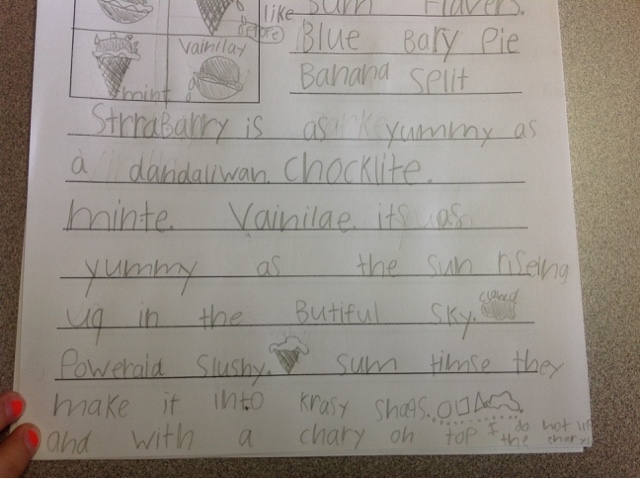 like Sum Flavers.
Blue Bary Pie
Vainilay
Banana Split
mint
StrraBarry is as yummy as
a dandaliwan. Chocklite.
minte. Vainilae. its as
yummy as the sun riseing
uq in the Butiful sky.
Poweraid Slushy. Sum timse they
make it into krasy shaqs.
and with a chary on top I do not like
the chary!